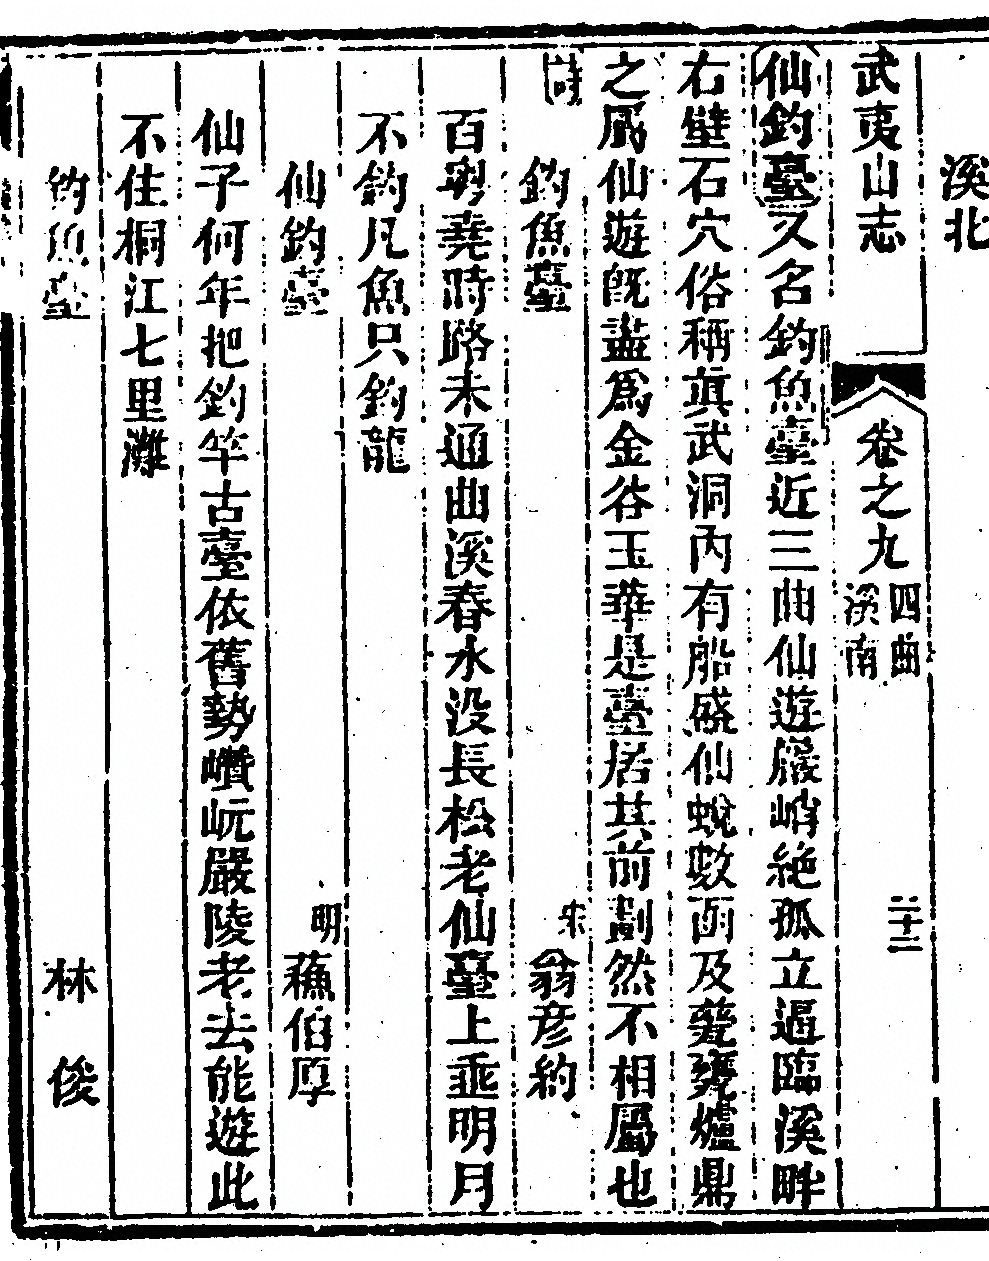 溪北
武夷山志
卷之九
四曲
溪南
二十二
仙釣臺又名釣魚臺近三曲仙遊巖峭絶孤立逼臨溪畔
右壁石穴俗稱眞武洞内有船盛仙蛻數函及甍甕爐鼎
之屬仙遊旣盡爲金谷玉華是臺居其前劃然不相屬也
詩
釣魚臺
宋
翁彦約
百粤堯時路未通曲溪春水没長松老仙臺上垂明月
不釣凡魚只釣龍
仙釣臺
明
蘓伯厚
仙子何年把釣竿古臺依舊勢巑岏嚴陵老去能遊此
不住桐江七里灘
釣魚臺
林俊